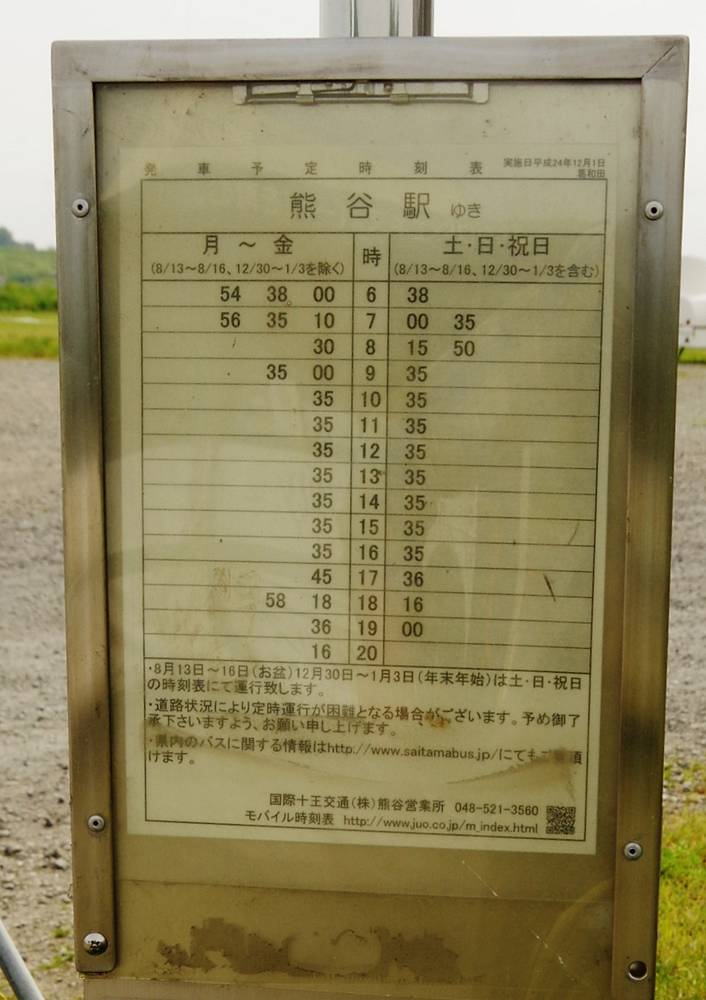 発車予定時刻表 実施日平成24年12月1日
葛和田
熊谷駅 ゆき
月～金 時 土・日・祝日
(8/13～8/16、12/30～1/3を除く) (8/13～8/16、12/30～1/3を含む)
54 38 00 6 38
56 35 10 7 00 35
30 8 15 50
35 00 9 35
35 10 35
35 11 35
35 12 35
35 13 35
35 14 35
35 15 35
35 16 35
45 17 36
58 18 18 16
36 19 00
16 20
・8月13日～16日(お盆)12月30日～1月3日(年末年始)は土・日・祝日
の時刻表にて運行致します。
・道路状況により定時運行が困難となる場合がございます。予め御了
承下さいますよう、お願い申し上げます。
・県内のバスに関する情報はhttp://www.saitamabus.jp/にても
けます。
国際十王交通(株)熊谷営業所 048-521-3560
モバイル時刻表 http://www.juo.co.jp/m_index.html